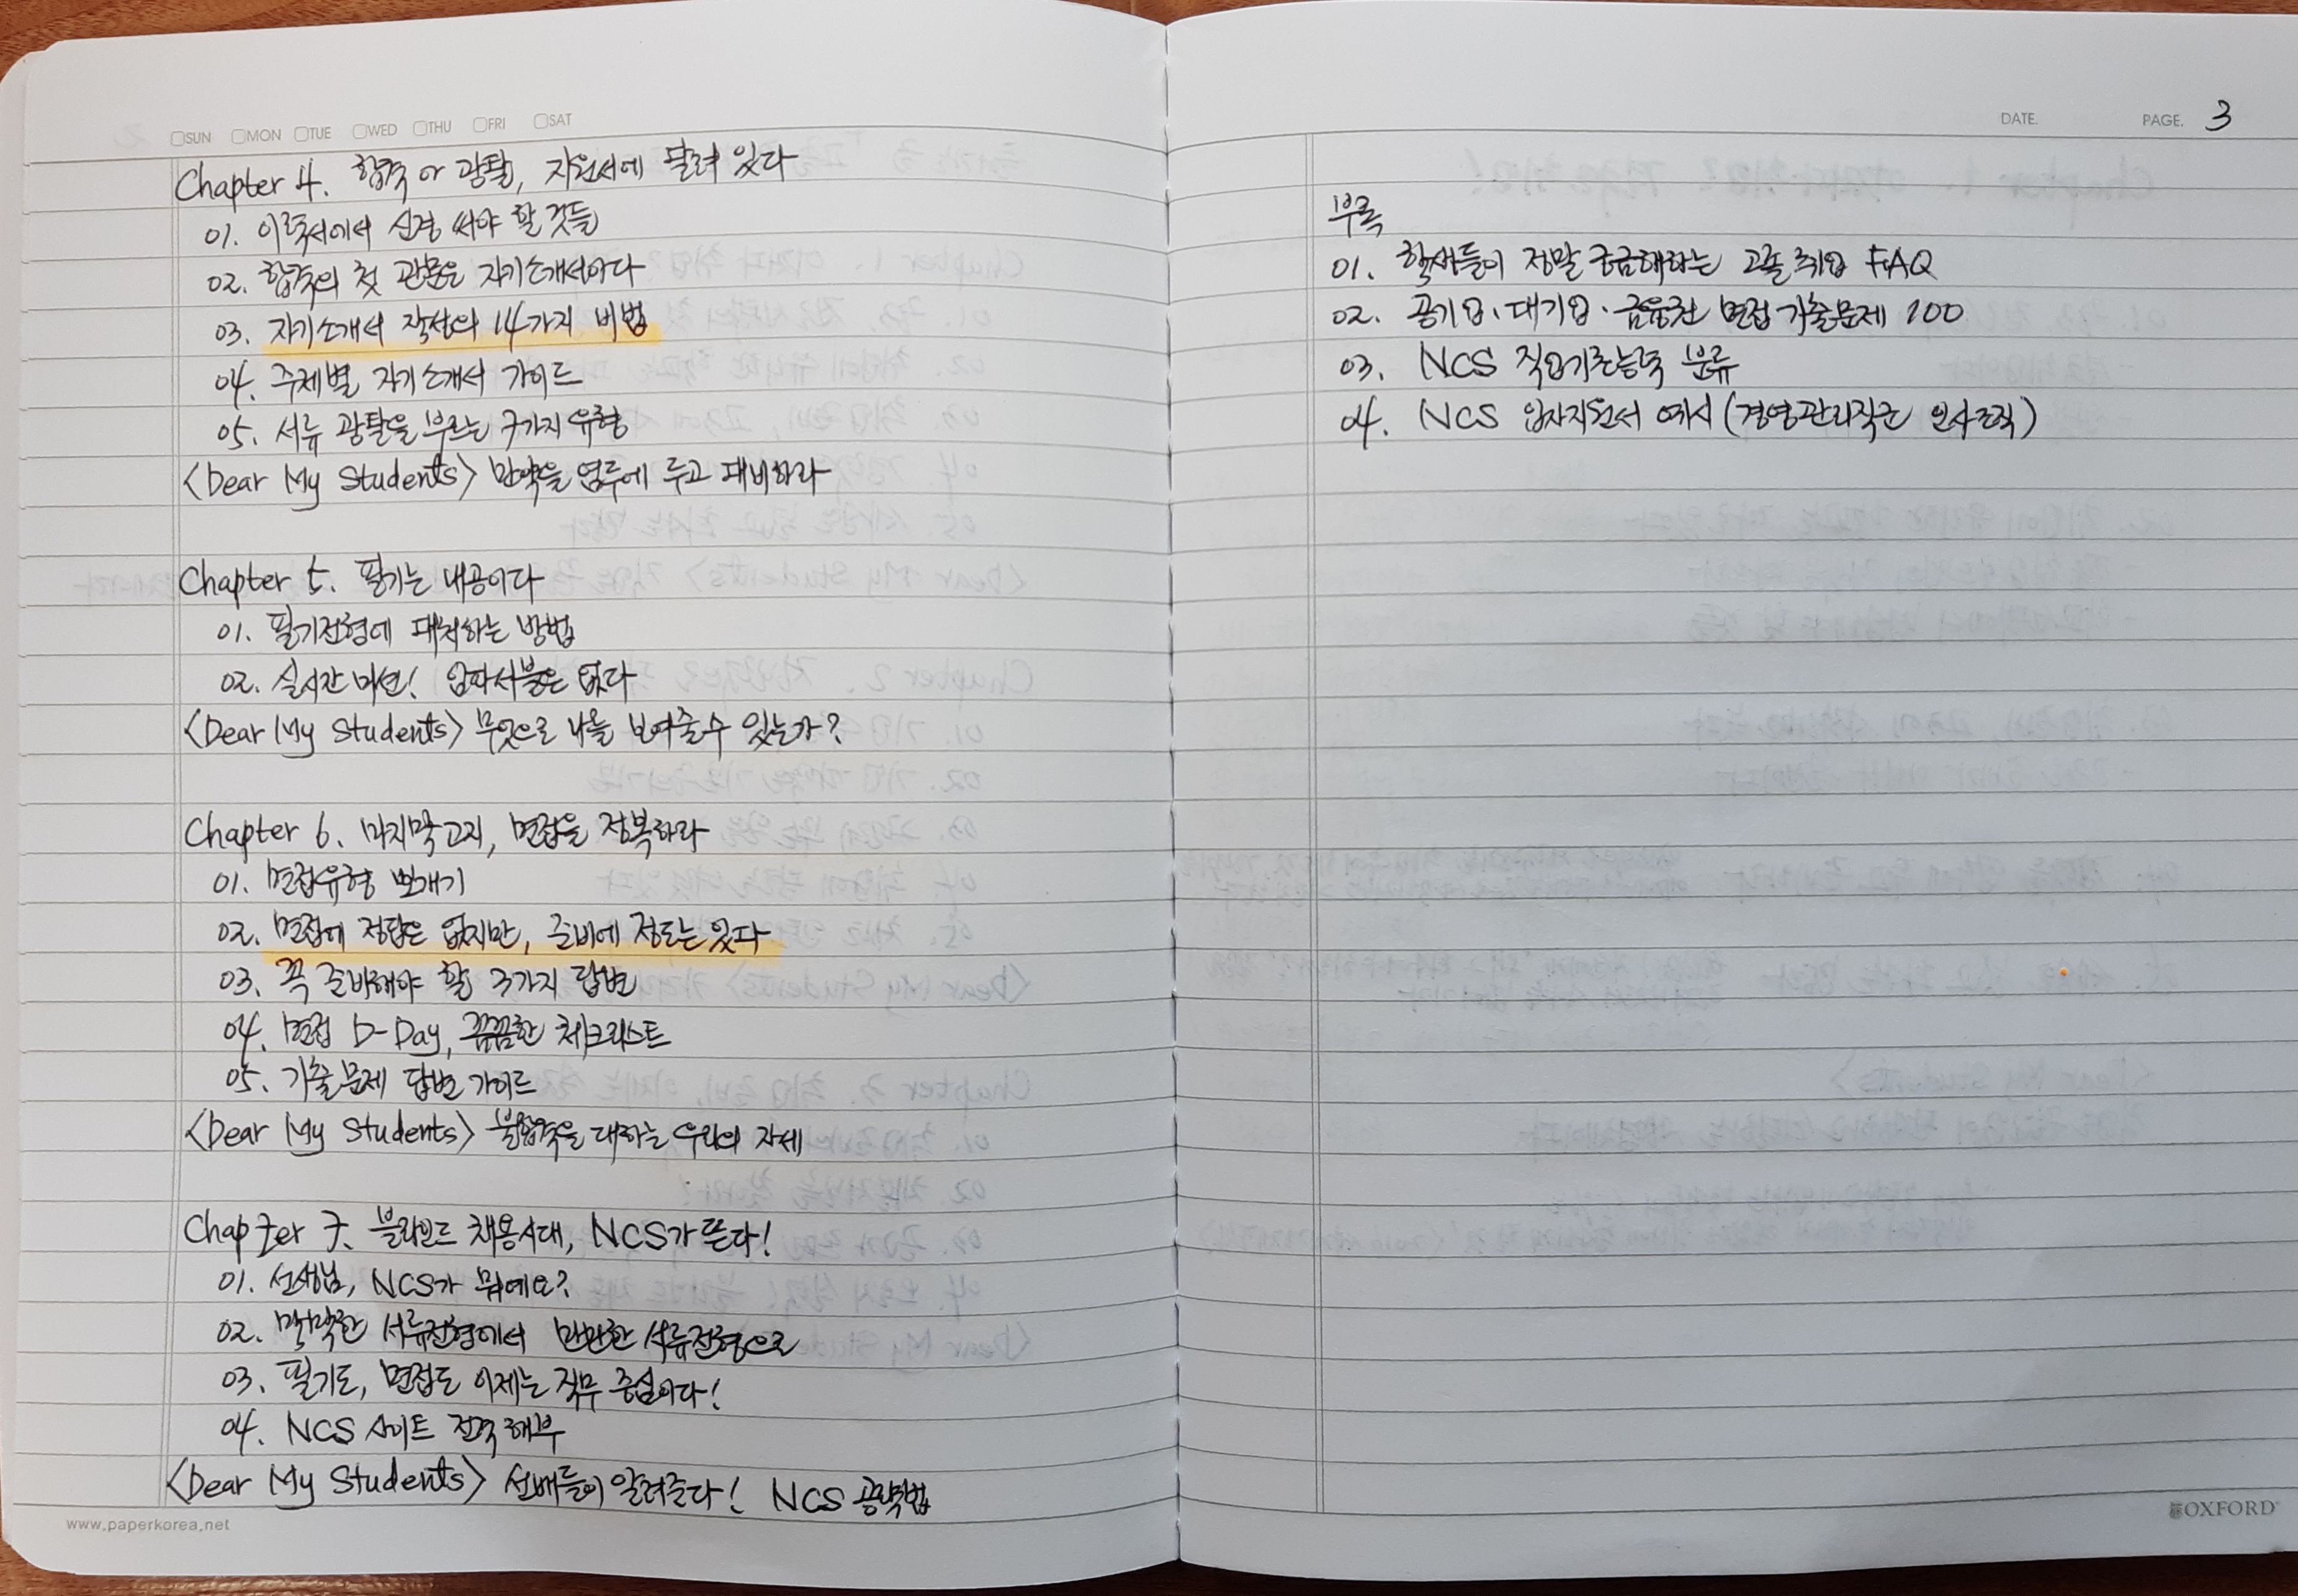 SUN MON TUE WED THU FRI SAT
Chapter 4. 합격 or 광탈, 지원서에 달려 있다
01. 이력서에서 신경 써야 할 것들
02. 합격의 첫 관문은 자기소개서이다
03. 자기소개서 작성의 14가지 비법
04. 주제별 자기소개서 가이드
05. 서류 광탈을 부르는 7가지 유형
<Dear My Students> 만약을 염두에 두고 대비하라
Chapter 5. 필기는 내공이다
01. 필기전형에 대처하는 방법
02. 실시간 미션! 임파서블은 없다
<Dear My Students> 무엇으로 나를 보여줄 수 있는가?
Chapter 6. 마지막 고지, 면접을 정복하라
01. 면접유형 뽀개기
02. 면접에 정답은 없지만, 준비에 정도는 있다
03. 꼭 준비해야 할 3가지 답변
04. 면접 D-Day, 꼼꼼한 체크리스트
05. 기출문제 답변 가이드
<Dear My Students> 불합격을 대하는 우리의 자세
Chapter 7. 블라인드 채용시대, NCS가 뜬다!
01. 선생님, NCS가 뭐예요?
02. 막막한 서류전형에서 만만한 서류전형으로
03. 필기도, 면접도 이제는 직무 중심이다!
04. NCS 사이트 전격 해부
<Dear My Students> 선배들이 알려준다! NCS 공략법
www.paperkorea.net
DATE. PAGE. 3
부록
01. 학생들이 정말 궁금해하는 고졸 취업 FAQ
02. 공기업·대기업·금융권 면접 기출문제 100
03. NCS 직업기초능력 분류
04. NCS 입사지원서 예시 (경영관리직군 인사조직)
OXFORD